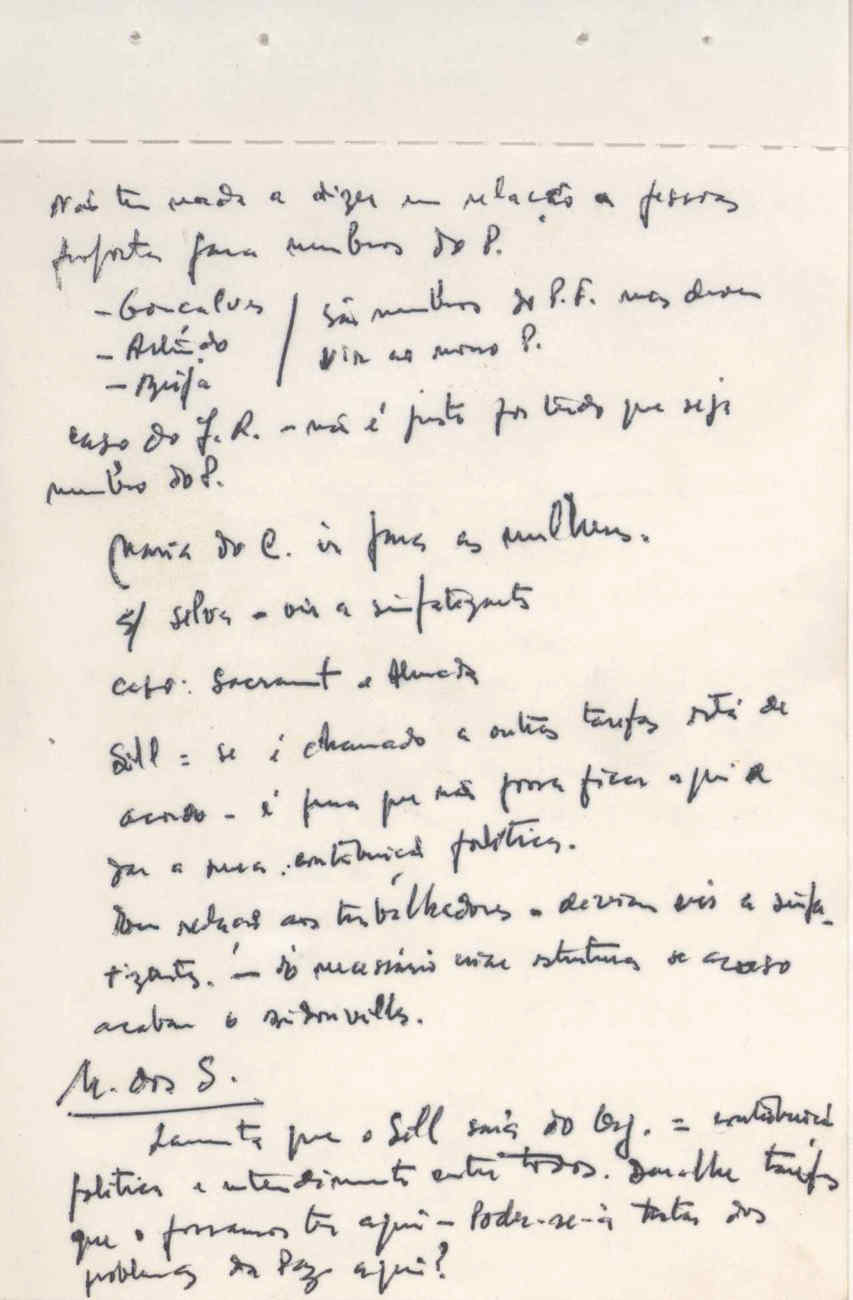 Não tem nada a dizer em relação a pessoas
propostas para membros do P.
- Gonçalves / são membros do P.F. mas devem
- Arlindo vir ao nosso P.
-
caso do J.R. - não é justo por tudo que seja
membro do P.
Maria do C. ir para as mulheres.
S/ Selva - vir a simpatizante
caso: Sacrament e Almada
Sill = se é chamado a outras tarefas está de
acordo - é pena que não possa ficar aqui e
dar a sua contribuição política.
Com relação aos trabalhadores - deviam vir a simpa-
tizantes. - é necessário criar estrutura se acaso
acabam o bidonville.
M. dos S.
Lamenta que o Sill saia do Org. = contribuição
política e entendimento entre todos. Dar-lhe tarefas
que o possamos ter aqui - Poder-se-á tratar dos
problemas da Paz aqui?